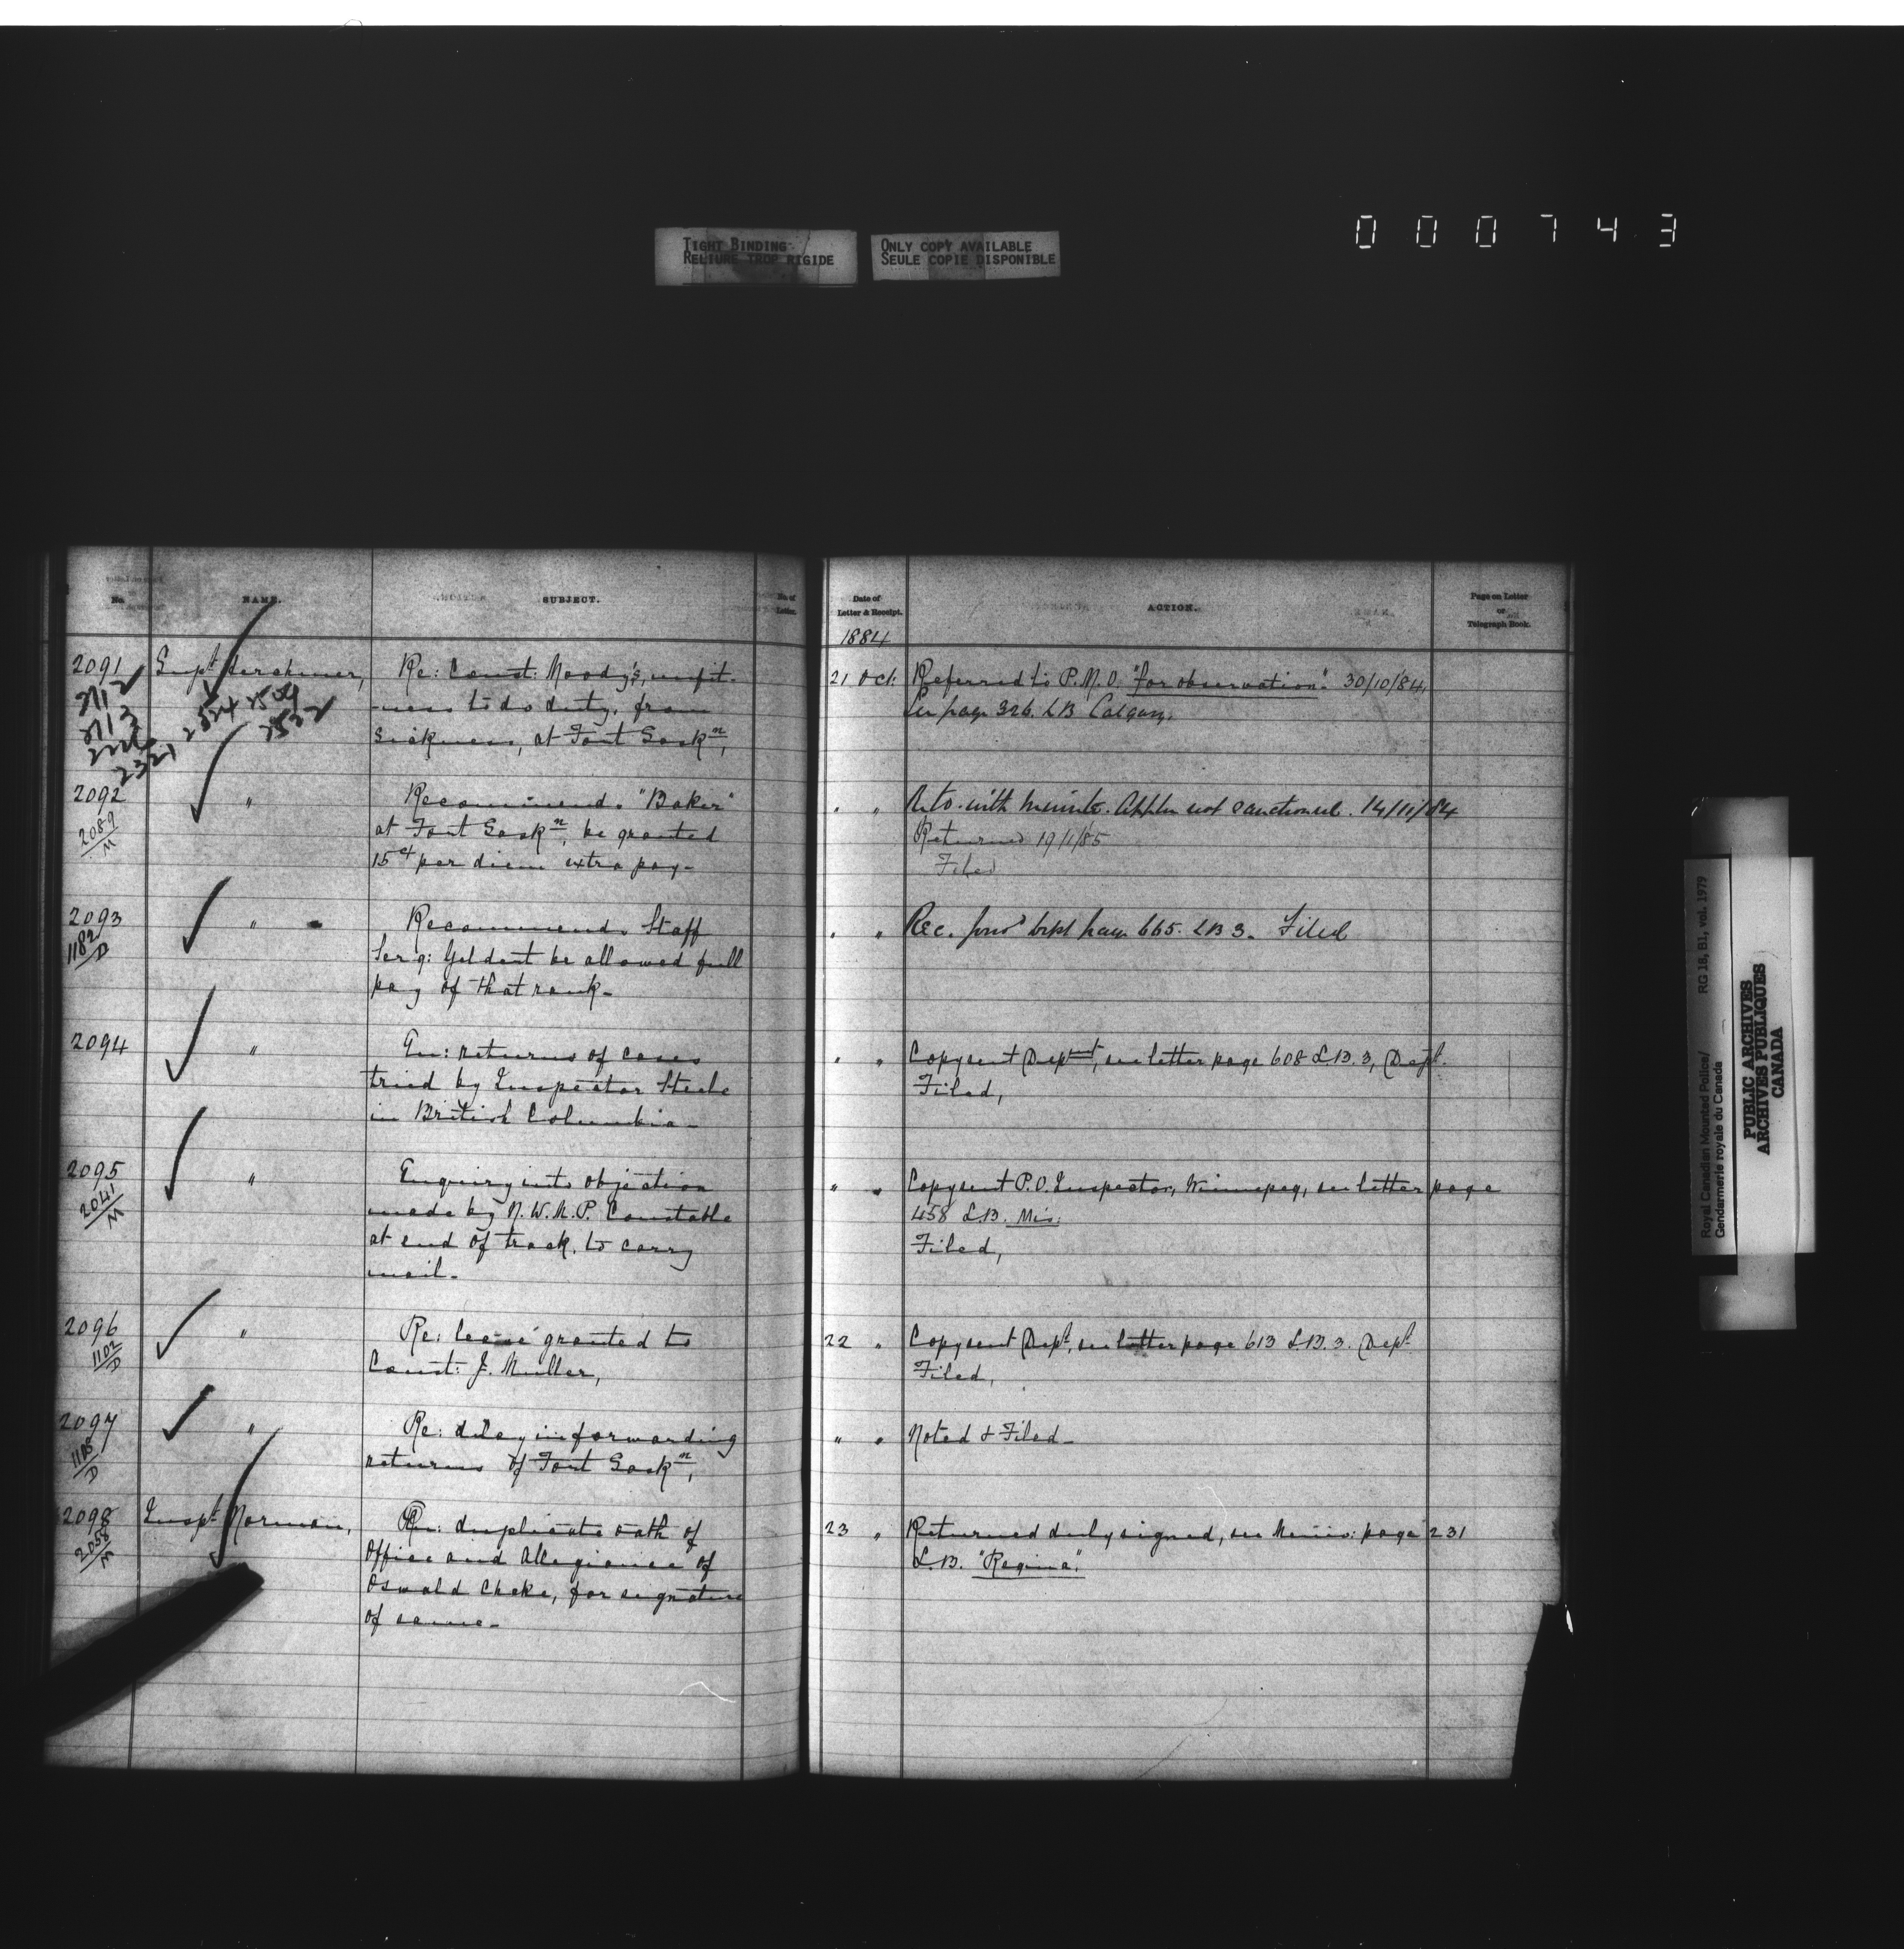 000743
TIGHT BINDING
RELIURE TROP RIGIDE
ONLY COPY AVAILABLE
SEULE COPIE DISPONIBLE
No.
NAME.
SUBJECT.
No of
Letter.
Date of
Letter & Receipt.
ACTION.
Page on Letter
or
Telegraph Book.
1884
2091
2112
2113
2321
2324 2504
2532
Supt Herchmer,
Re: Const: Moody's, unfit-
-ness to do duty, from
sickness, at Fort Saskn,
21 Oct:
Referred to P.M.O. "for observation". 30/10/84,
See page 326. LB Calgary.
2092
2089/M
"
Recommends "Baker"
at Fort Saskn, be granted
15ct per diem extra pay-
" "
with minute. Appln not sanctioned. 14/11/84
Returned 19/1/85
Filed
2093
1182/D
"
Recommends Staff
Serg: Geldert be allowed full
pay of that rank-
" "
Rec. 665. LB 3. Filed
2094
"
En: returns of cases
tried by Inspector Steele
in British Columbia-
" "
Copy sent Deptmt, see letter page 608 L.B. 3, Dept.
Filed,
2095
2041/M
"
Enquiry into objection
made by N.W.M.P. Constable
at end of track, to carry
mail-
" "
Copy sent P.O. Inspector, Winnipeg, see letter page
458 L.B. Mis:
Filed,
2096
1102/D
"
Re: leave granted to
Const: J. Muller,
22 "
Copy sent Dept, see letter page 613 L.B. 3. Dept
Filed,
2097
1185/D
"
Re: delay in forwarding
returns of Fort Saskn,
" "
Noted & Filed-
2098
2058/M
Inspt Norman,
En: duplicate oath of
Office and Allegiance of
Oswald Cheke, for signature
of same-
23 "
Returned duly signed, see Memo: page 231
L.B. "Regina".
Royal Canadian Mounted Police/ RG 18, B1, vol. 1979
Gendarmerie royale du Canada
PUBLIC ARCHIVES
ARCHIVES PUBLIQUES
CANADA